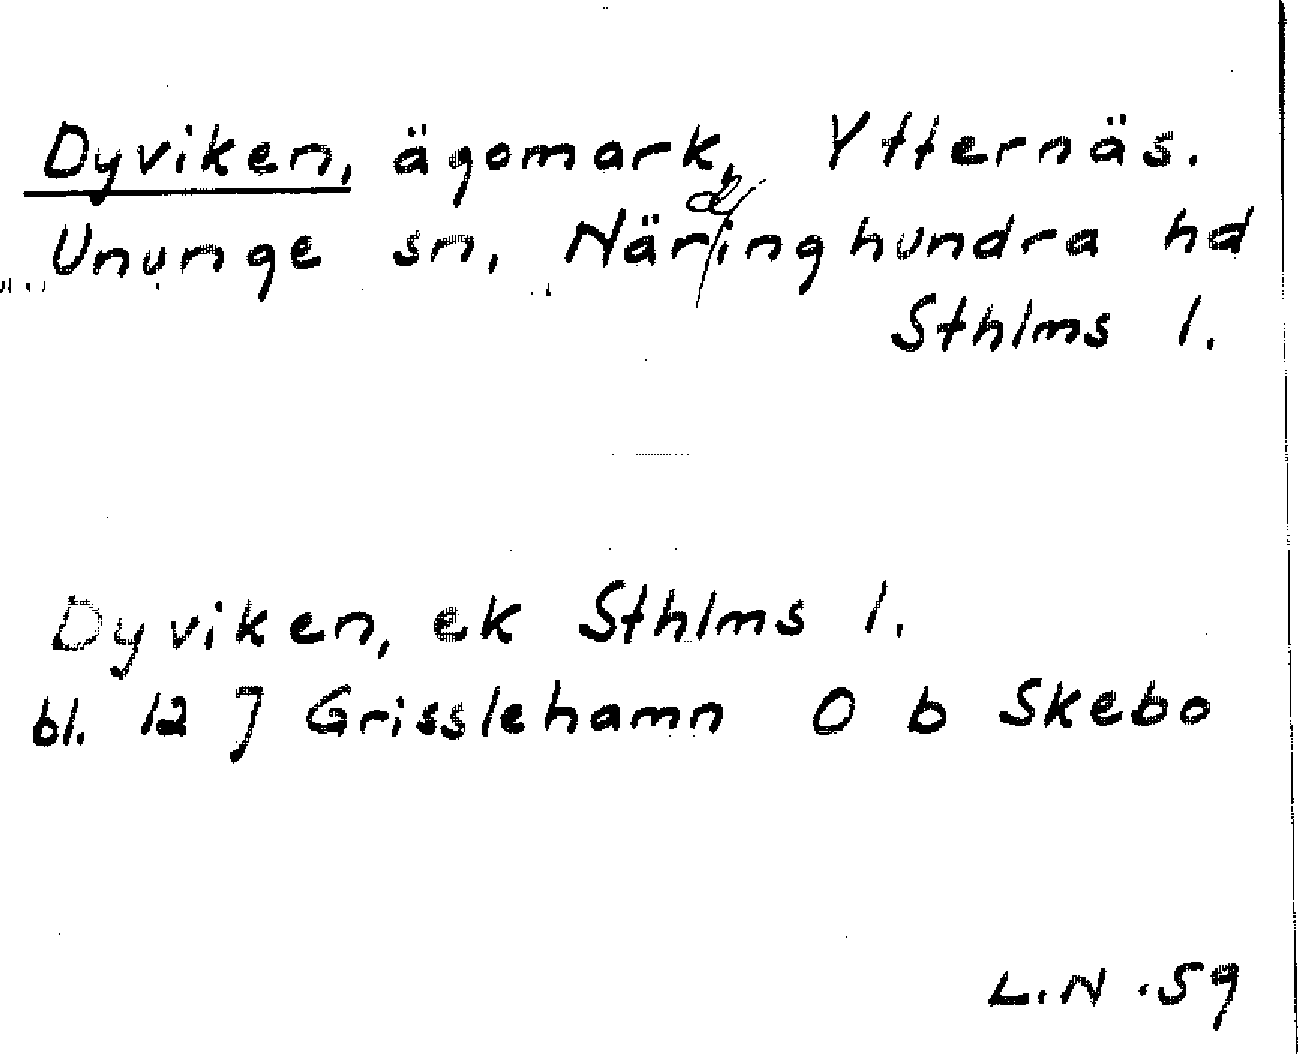 Dyviken, ägomark, Ytternäs.
Ununge sn, Närdinghundra hd
Sthlms l.
Dyviken, ek Sthlms l.
bl. 12 J Grisslehamn O b Skebo
L.N.59